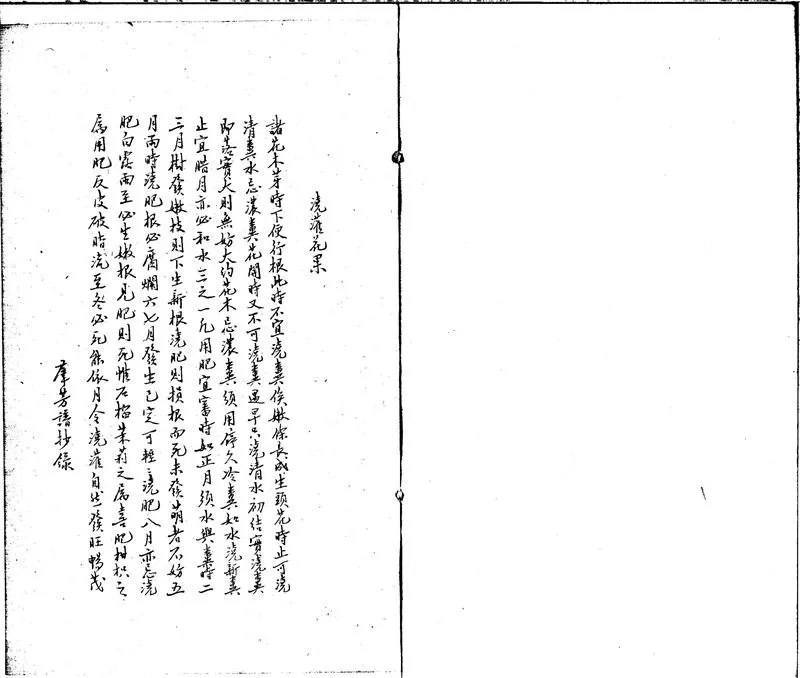 澆灌花果
諸花木芽時下便行根此時不宜澆糞俟嫩條長成生頭花時止可澆
清糞水忌濃糞花開時又不可澆糞遇旱只澆清水初結實澆糞
即落實大則無妨大約花木忌濃糞須用停久冷糞如水澆新糞
止宜臘月亦必和水三之一凡用肥宜審時如正月須水與糞時二
三月樹發嫩枝則下生新根澆肥則損根而死未發萌者不妨五
月雨時澆肥根必腐爛六七月發生已定可輕輕澆肥八月亦忌澆
肥白露雨至必生嫩根見肥則死惟石榴茉莉之属喜肥柑橘之
属用肥反皮破脂流至冬必死能依月令澆灌自然發旺暢茂
羣芳譜抄錄